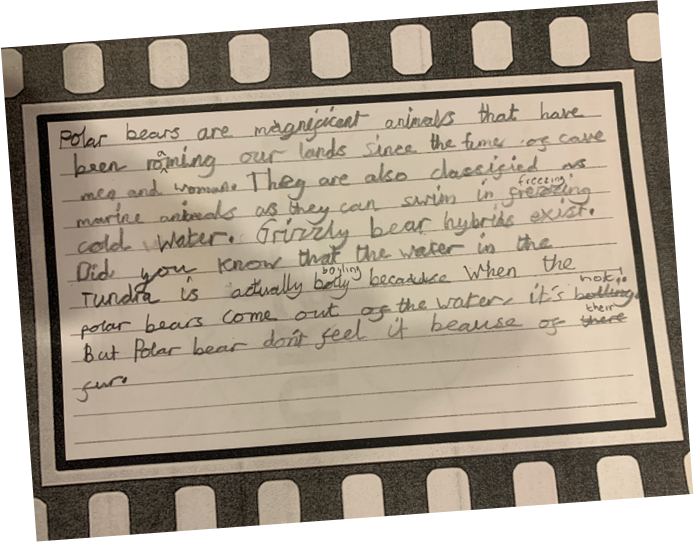 Polar bears are magnificent animals that have
been roaming our lands since the times of cave
men and womans. They are also classified as
marine animals as they can swim in freezing
cold water. Grizzly bear hybrids exist.
Did you know that the water in the
Tundra is actually boyling because When the
polar bears come out of the water it's hot!
But Polar bear don't feel it beause of their
fur.